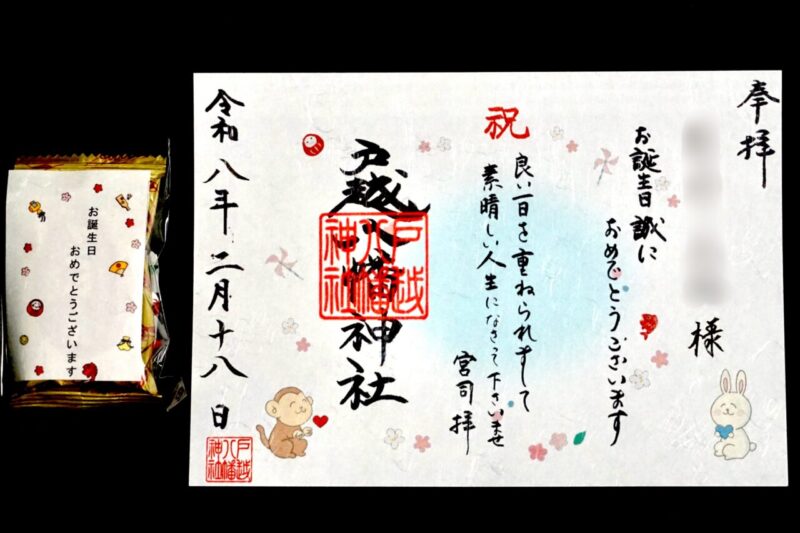 奉拝
様
お誕生日 誠に
おめでとうございます
祝
良い一日を重ねられまして
素晴しい人生になさって下さいませ
宮司 拝
戸越八幡神社
戸越
八幡
神社
令和八年二月十八日
戸越
八幡
神社
お誕生日
おめでとうございます